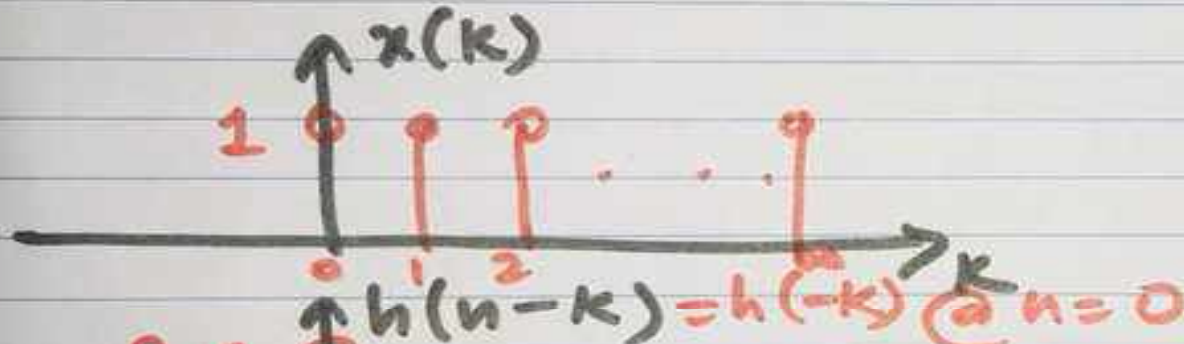 x(k)
1
0 1 2
k
h(n-k) = h(-k) @ n = 0